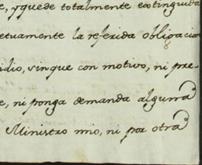 e, y quede totalmente extinguida
etuamente la referida obligacion
idio, sin que con motivo, ni pre-
e, ni ponga demanda alguna
Ministro mio, ni por otra